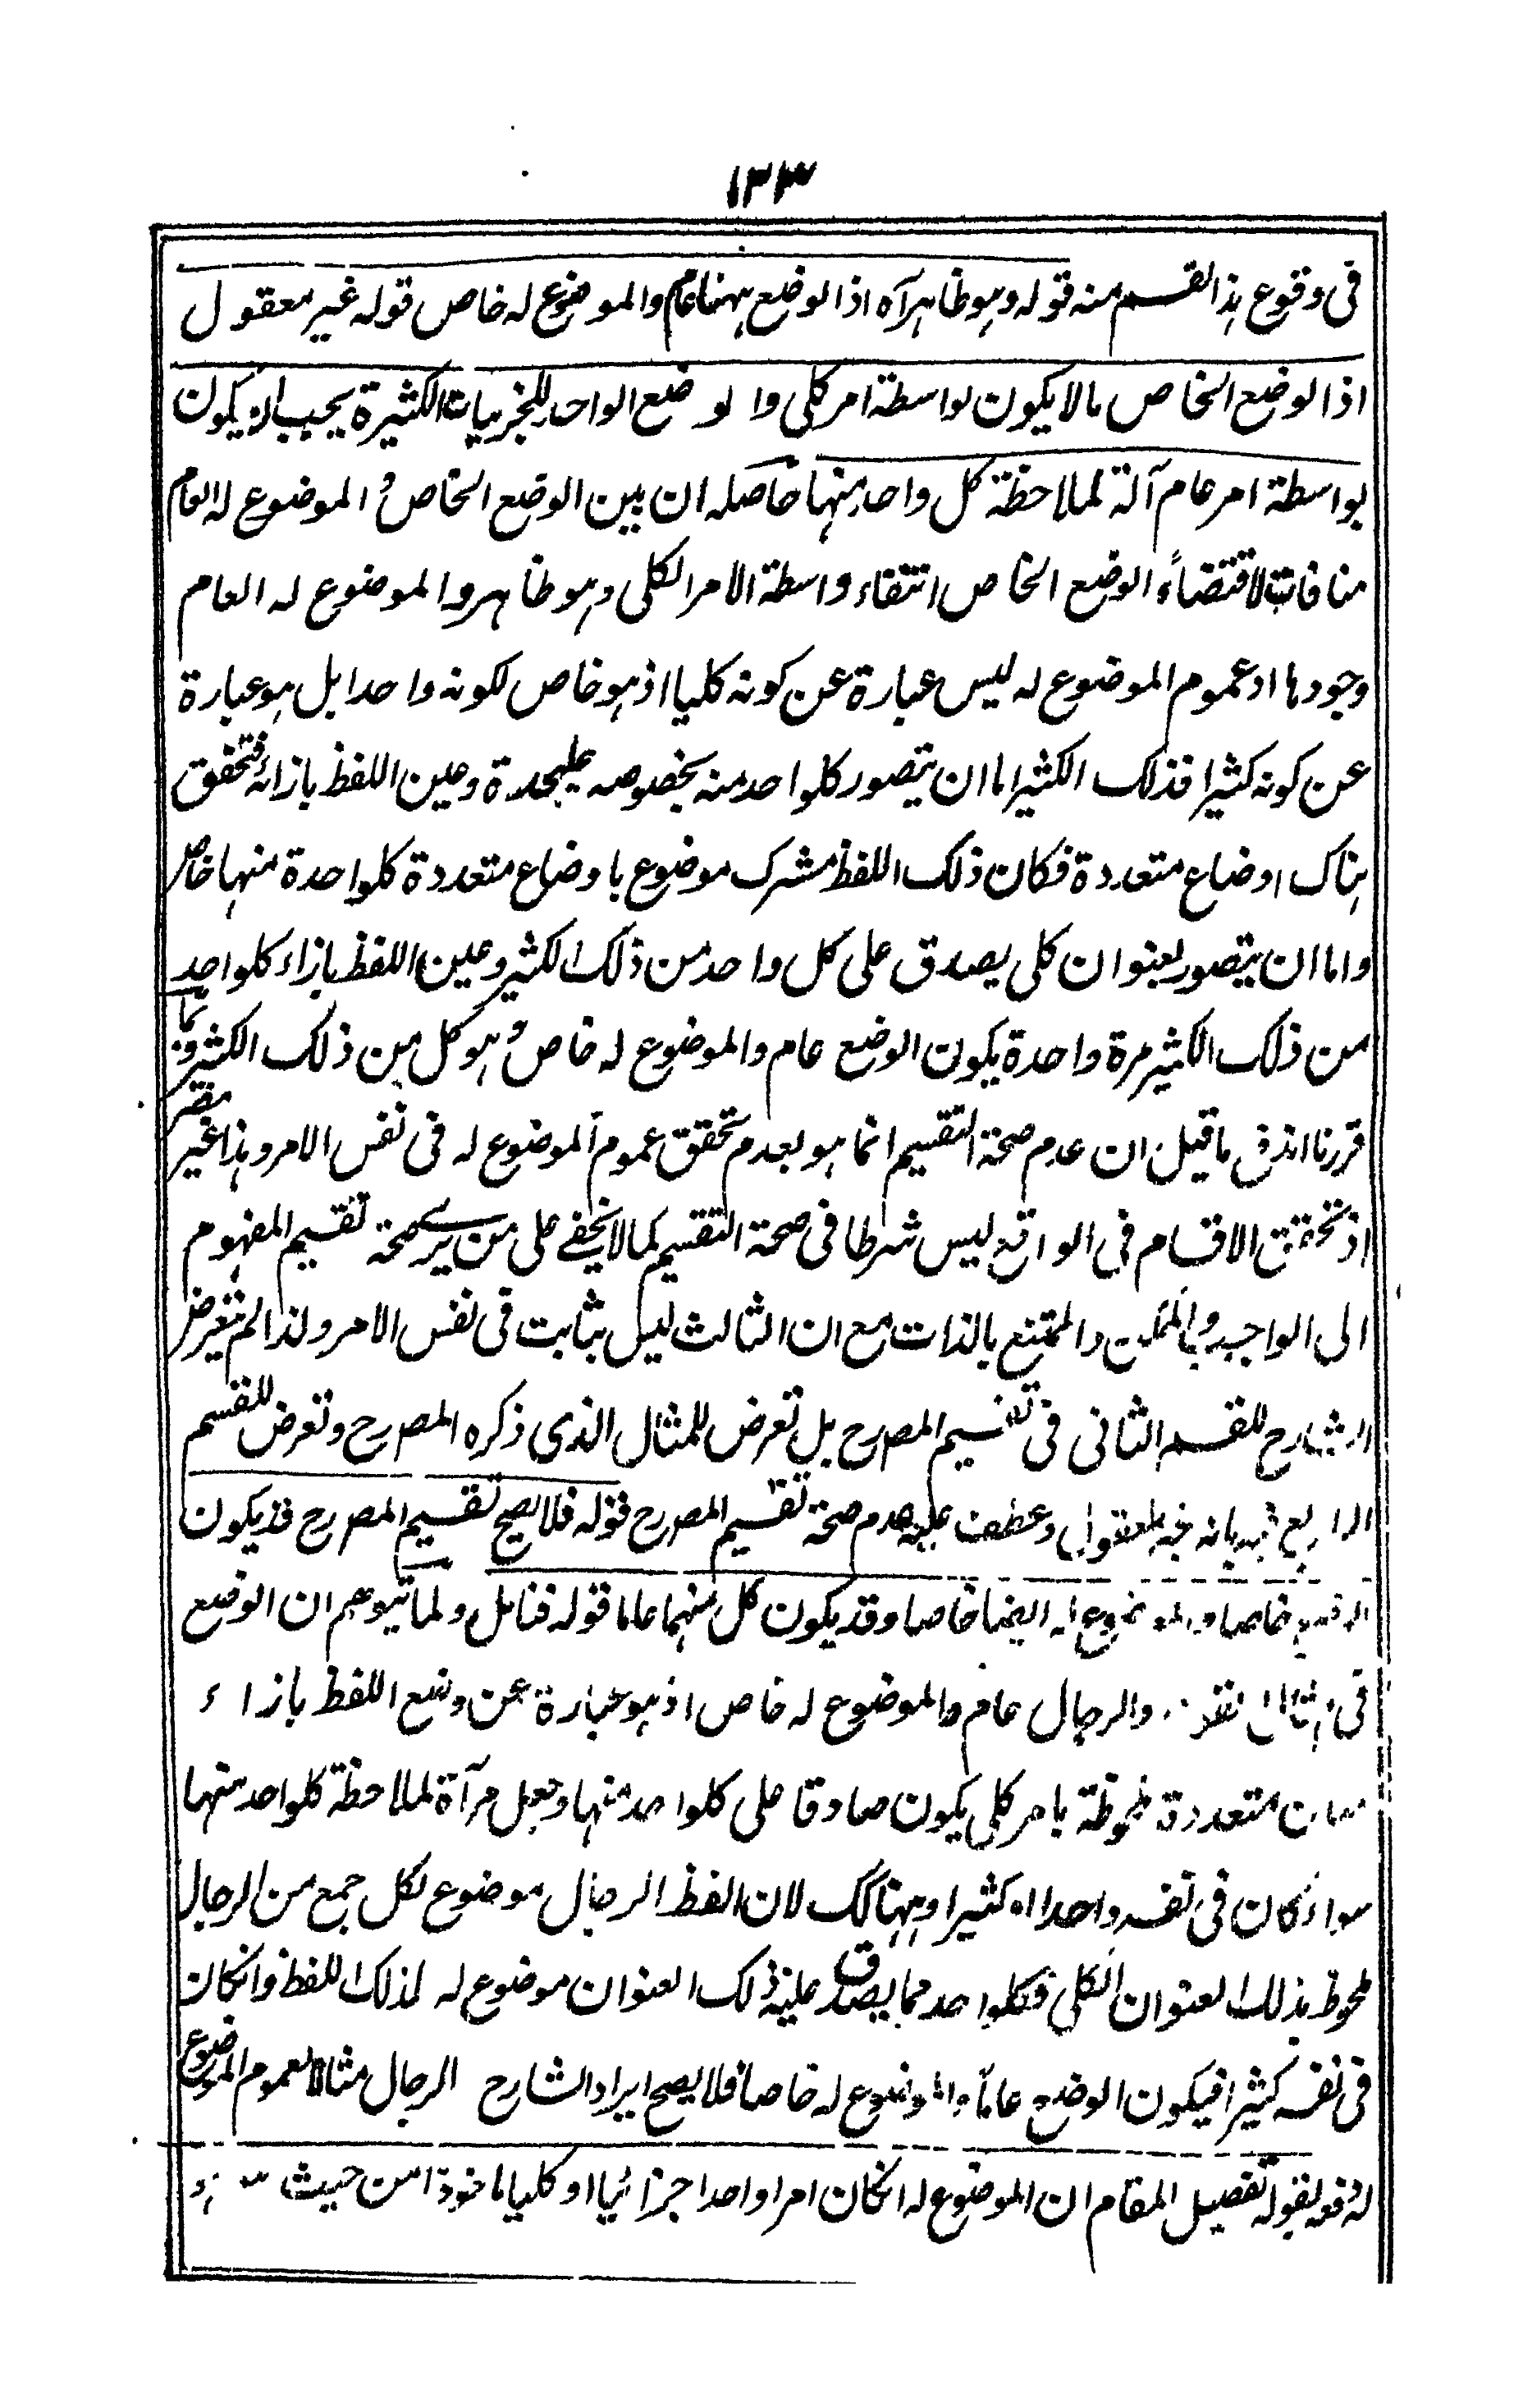 ١٣٣
فى وقوع هذا القسم منه قوله وهو ظاهر آه اذ الوضع ههنا عام والموضوع له خاص قوله غير معقول
اذ الوضع الخاص ما لا يكون بواسطة امر كلى والوضع الواحد للجزئيات الكثيرة يجب ان يكون
بواسطة امر عام آلة لملاحظة كل واحد منها حاصله ان بين الوضع الخاص و الموضوع له العام
منافات لاقتضاء الوضع الخاص انتفاء واسطة الامر الكلى وهو ظاهر والموضوع له العام
وجودها اذ عموم الموضوع له ليس عبارة عن كونه كليا اذ هو خاص لكونه واحدا بل هو عبارة
عن كونه كثيرا فذلك الكثير اما ان يتصور كلواحد منه بخصوصه عليحدة وعين اللفظ بازائه فتحقق
هناك اوضاع متعددة فكان ذلك اللفظ مشترك موضوع باوضاع متعددة كلواحدة منها خاص
واما ان يتصور بعنوان كلى يصدق على كل واحد من ذلك الكثير وعين اللفظ بازاء كلواحد
من ذلك الكثير مرة واحدة يكون الوضع عام والموضوع له خاص و هو كل من ذلك الكثير وبما
قررنا اندفع ما قيل ان عدم صحة التقسيم انما هو بعدم تحقق عموم الموضوع له فى نفس الامر وهذا غير مضر
اذ تحقق الاقسام فى الواقع ليس شرطا فى صحة التقسيم كما لا يخفى على من يرى صحة تقسيم المفهوم
الى الواجب والممكن والممتنع بالذات مع ان الثالث ليس بثابت فى نفس الامر ولذا لم يتعرض
الشارح للقسم الثانى فى تقسيم المصرح بل تعرض للمثال الذى ذكره المصرح وتعرض للقسم
الرابع فيه بانه غير معقول وعطف عليه عدم صحة تقسيم المصرح قوله فلا يصح تقسيم المصرح قد يكون
الوضع خاصا والموضوع له ايضا خاصا وقد يكون كل منهما عاما قوله فتامل ولما يتوهم ان الوضع
فى والرجال عام والموضوع له خاص اذ هو عبارة عن وضع اللفظ بازاء
معان متعددة ملحوظة بامر كلى يكون صادقا على كلواحد منها وجعل مرآة لملاحظة كلواحد منها
سواء كان فى نفسه واحدا او كثيرا وههنا كك لان لفظ الرجال موضوع لكل جمع من الرجال
ملحوظ بذلك العنوان الكلى فكلواحد مما يصدق عليه ذلك العنوان موضوع له لذلك اللفظ وانكان
فى نفسه كثيرا فيكون الوضع عاما والموضوع له خاصا فلا يصح ايراد الشارح الرجال مثالا لعموم الموضوع
له دفعه بقوله تفصيل المقام ان الموضوع له انكان امرا واحدا جزئيا او كليا ماخوذا من حيث